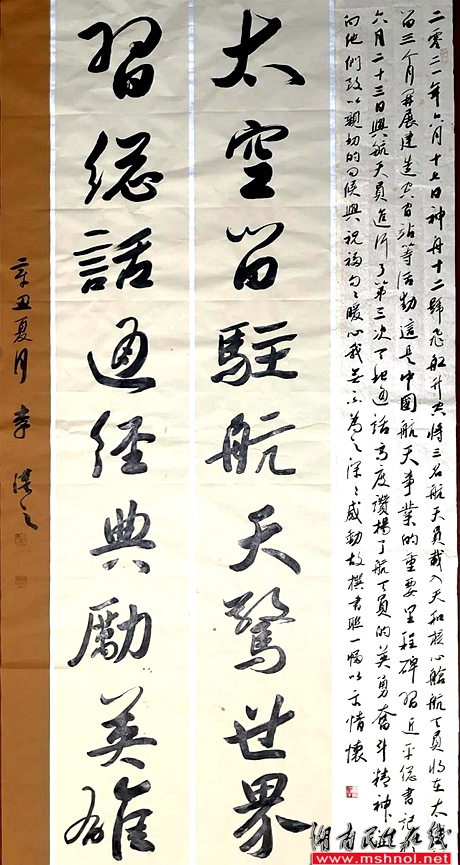 二零二一年六月十七日神舟十二號飛船升空將三名航天員載入天和核心艙航天員將在太
留三个月開展建造空间站等活動這是中國航天事業的重要里程碑習近平總書記
六月二十三日與航天員進行了第三次天地通話高度讚揚了航天員的英勇奮斗精神
向他們致以親切的问候與祝福句々暖心我為之深々感動故撰書聯一幅以示情懷
太空留駐航天驚世界
習總話通经典勵英雄
辛丑夏月 李
湖南民進在线
www.mshnol.net